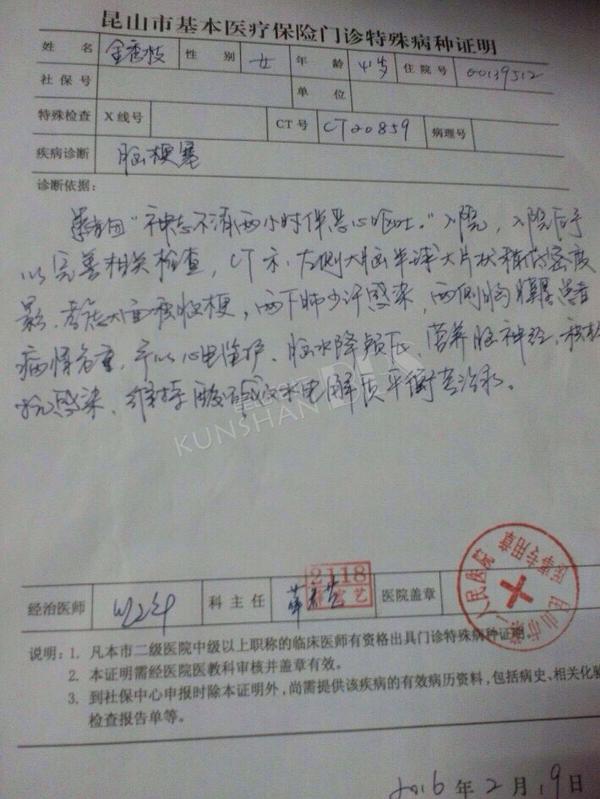 昆山市基本医疗保险门诊特殊病种证明
姓 名 金 枝 性 别 女 年 龄 41岁 住院号 00139512
社保号 单 位
特殊检查 X线号 CT号 CT20859 病理号
疾病诊断 脑梗塞
诊断依据:
患者因"神志不清两小时伴恶心呕吐。"入院,入院后予
以完善相关检查,CT示:左侧大脑半球大片状稍低密度
影,考虑大面积脑梗,两下肺少许感染,两侧胸膜 患者
病情危重,予以心电监护、脱水降颅压、营养脑神经、
抗感染、维持酸碱及水电解质平衡等治疗。
KUNSHAN
2118
经治医师 科主任 医院盖章
人民医院
医事专用章
昆山市第
说明:1. 凡本市二级医院中级以上职称的临床医师有资格出具门诊特殊病种证明。
2. 本证明需经医院医教科审核并盖章有效。
3. 到社保中心申报时除本证明外,尚需提供该疾病的有效病历资料,包括病史、相关化验
检查报告单等。
2016 年 2 月 19 日